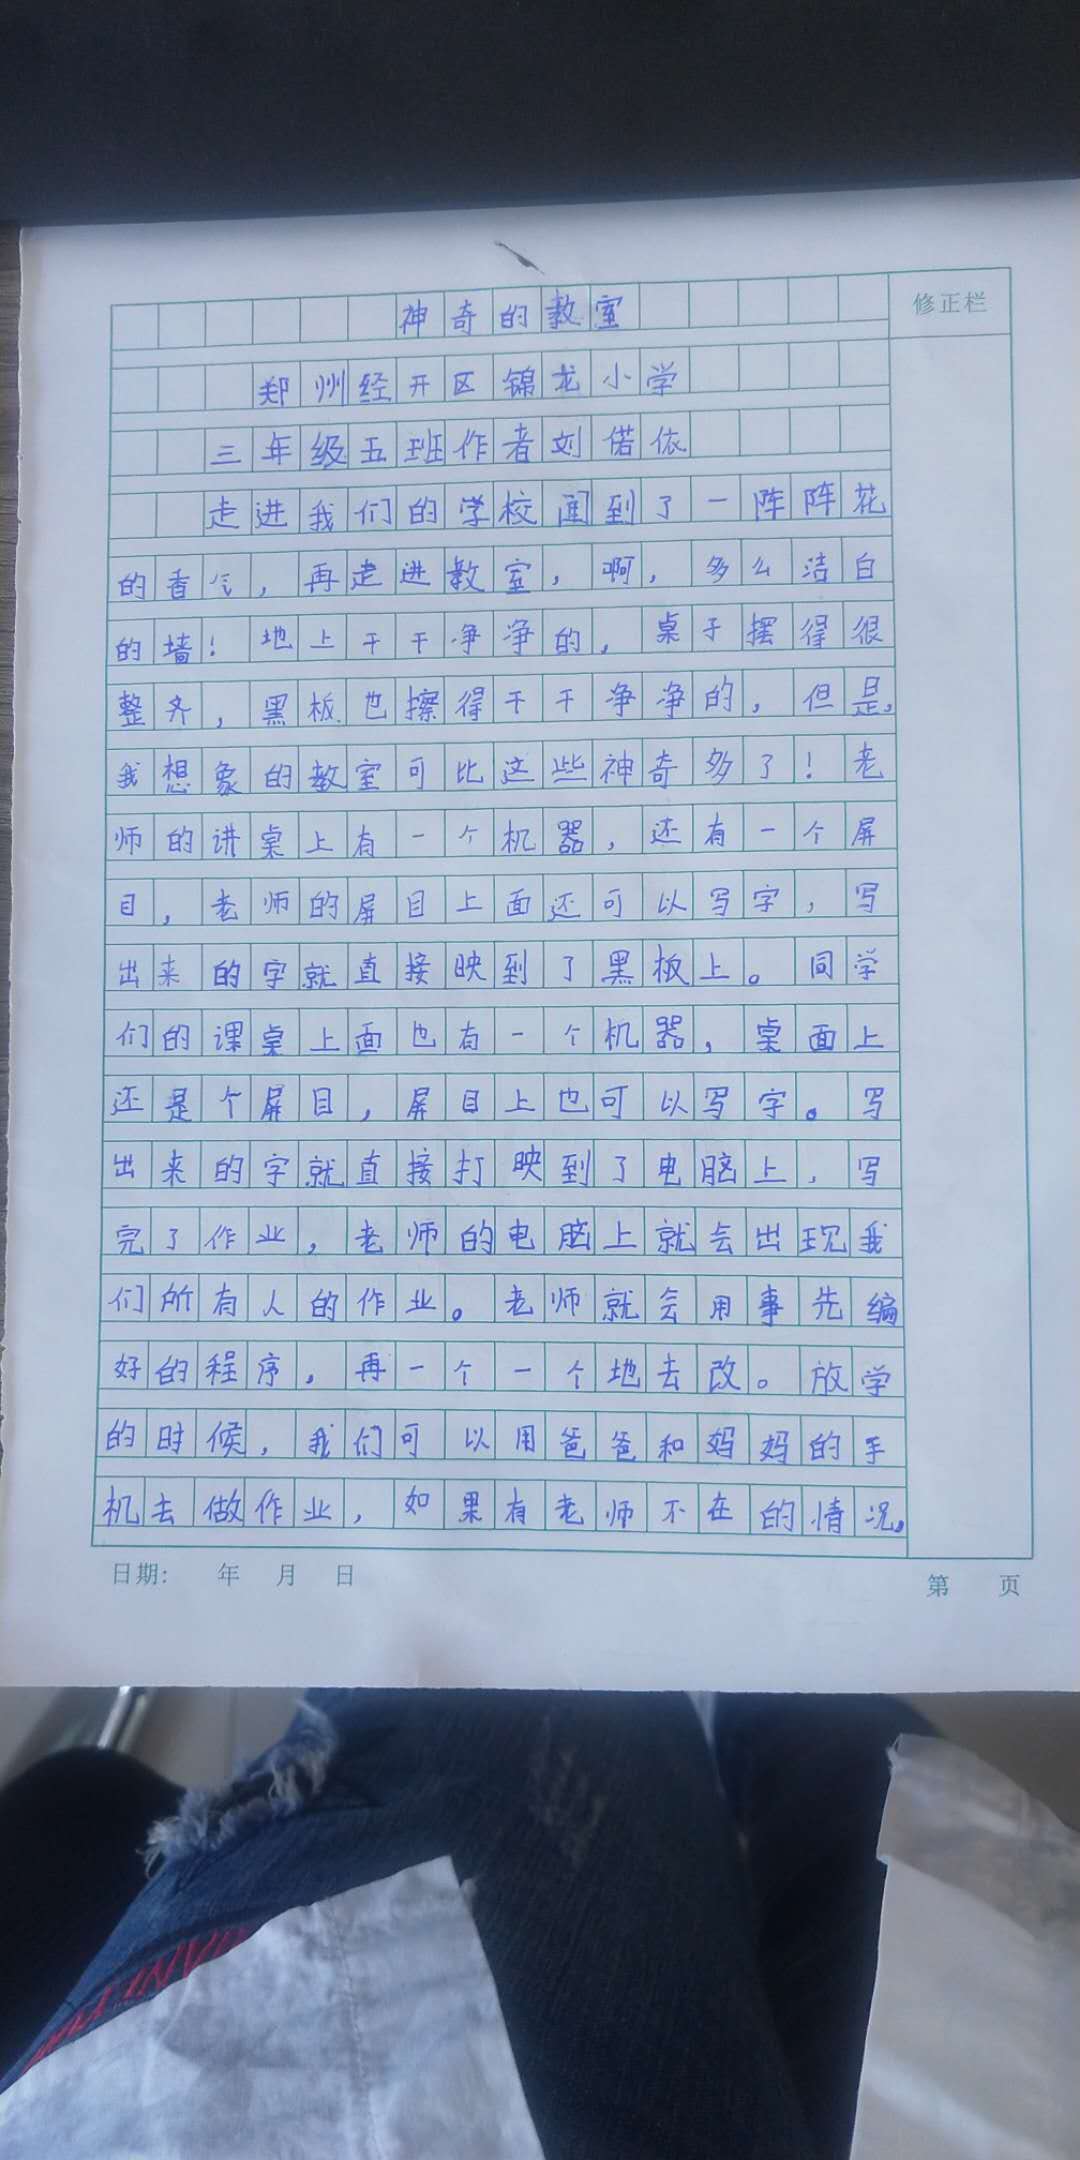 神奇的教室
修正栏
郑州经开区锦龙小学
三年级五班作者刘偌依
走进我们的学校闻到了一阵阵花
的香气，再走进教室，啊，多么洁白
的墙！地上干干净净的，桌子摆得很
整齐，黑板也擦得干干净净的，但是，
我想象的教室可比这些神奇多了！老
师的讲桌上有一个机器，还有一个屏
目，老师的屏目上面还可以写字，写
出来的字就直接映到了黑板上。同学
们的课桌上面也有一个机器，桌面上
还是个屏目，屏目上也可以写字。写
出来的字就直接打映到了电脑上，写
完了作业，老师的电脑上就会出现我
们所有人的作业。老师就会用事先编
好的程序，再一个一个地去改。放学
的时候，我们可以用爸爸和妈妈的手
机去做作业，如果有老师不在的情况，
日期： 年 月 日
第 页